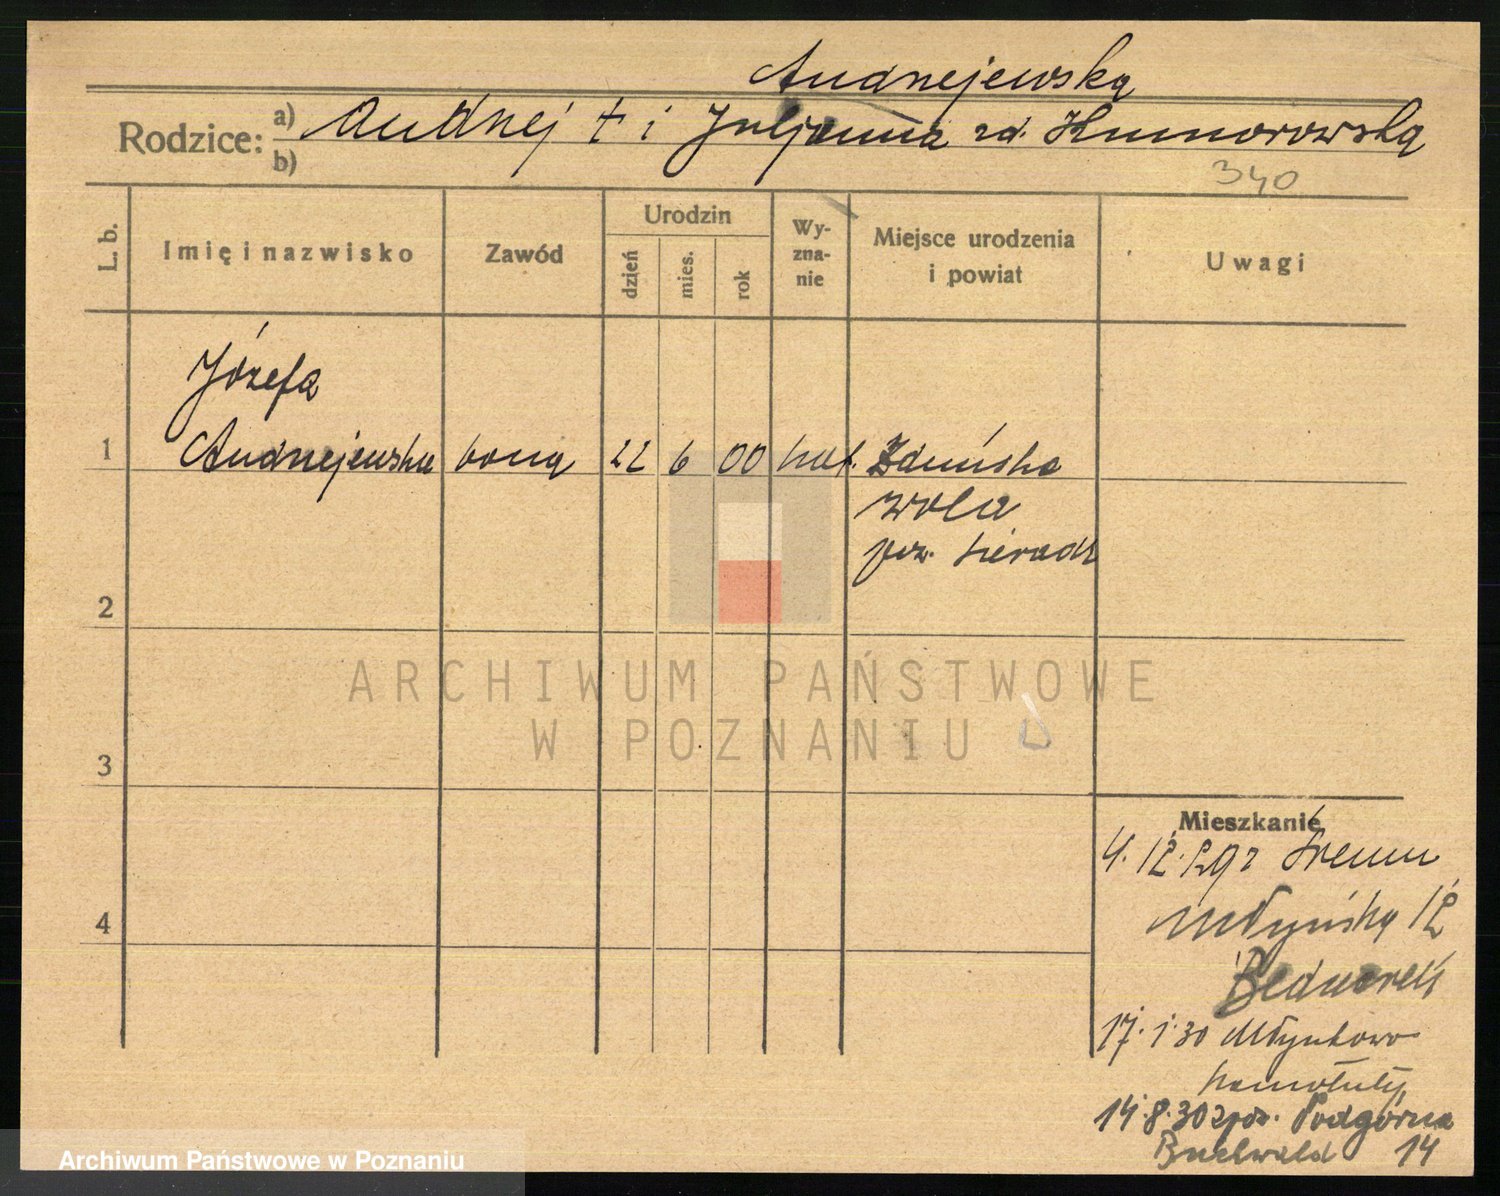 Andrzejewską
Rodzice: a) b) Andrzej + i Juljanna zd. Humorowską
340
L. b.
Imię i nazwisko
Zawód
Urodzin
dzień
mies.
rok
Wy-
zna-
nie
Miejsce urodzenia
i powiat
Uwagi
Józefa
1 Andrzejewska bona 22 6 00 kat. Zduńska
wola
pow. Sieradz
2
3
4
Mieszkanie
4. 12. 29 z Śremu
Młyńska 12
17. 1. 30 Młynkowo
Szamotuły
14. 8. 30 zpow. Podgórna
Buchwald 14
ARCHIWUM PAŃSTWOWE
W POZNANIU
Archiwum Państwowe w Poznaniu